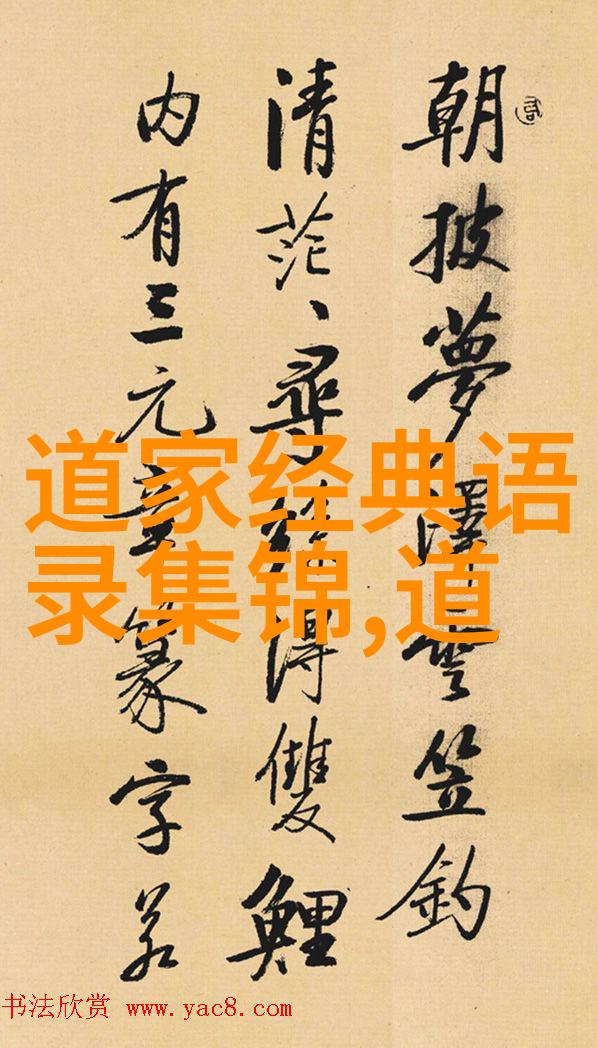 朝披夢澤雲笠釣
清茫、尋絲得雙鯉
内有三元章篆字若
道家经典语
录集锦,道
书法欣赏 www.yac8.com